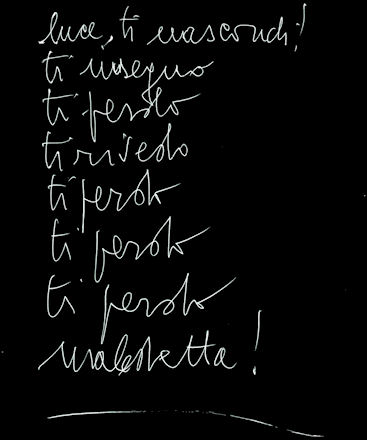 luce, ti nascondi!
ti inseguo
ti perdo
ti rivedo
ti perdo
ti perdo
ti perdo
maledetta!